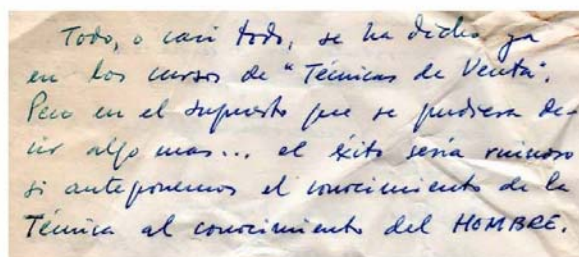 Todo, o casi todo, se ha dicho ya
en los cursos de "Técnicas de Venta".
Pero en el supuesto que se pudiera de-
cir algo mas... el éxito sería ruinoso
si anteponemos el conocimiento de la
Técnica al conocimiento del HOMBRE.